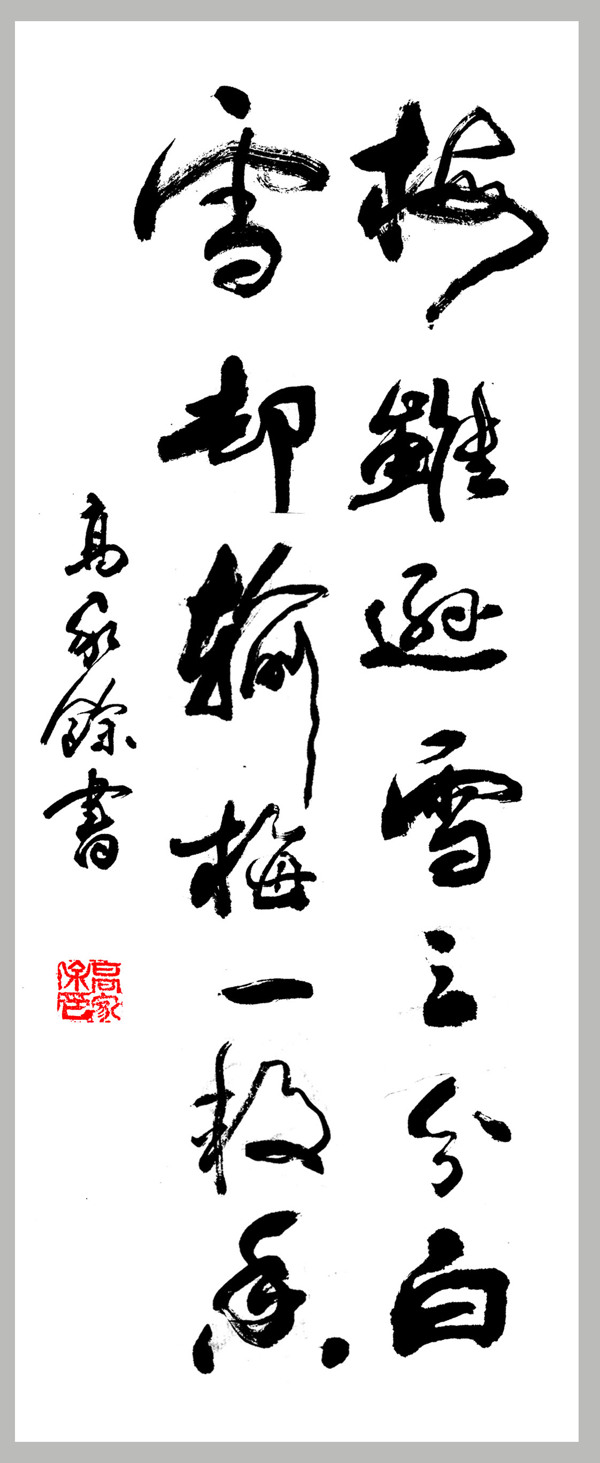 梅雖遜雪三分白
雪却輸梅一段香
高家餘書
高家余印